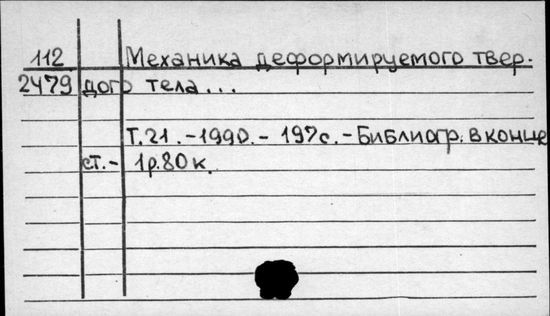 112 Механика деформируемого твер-
2479 дого тела...
Т.21.-1990.-197с.-Библиогр. в конце
ст.- 1р.80к.